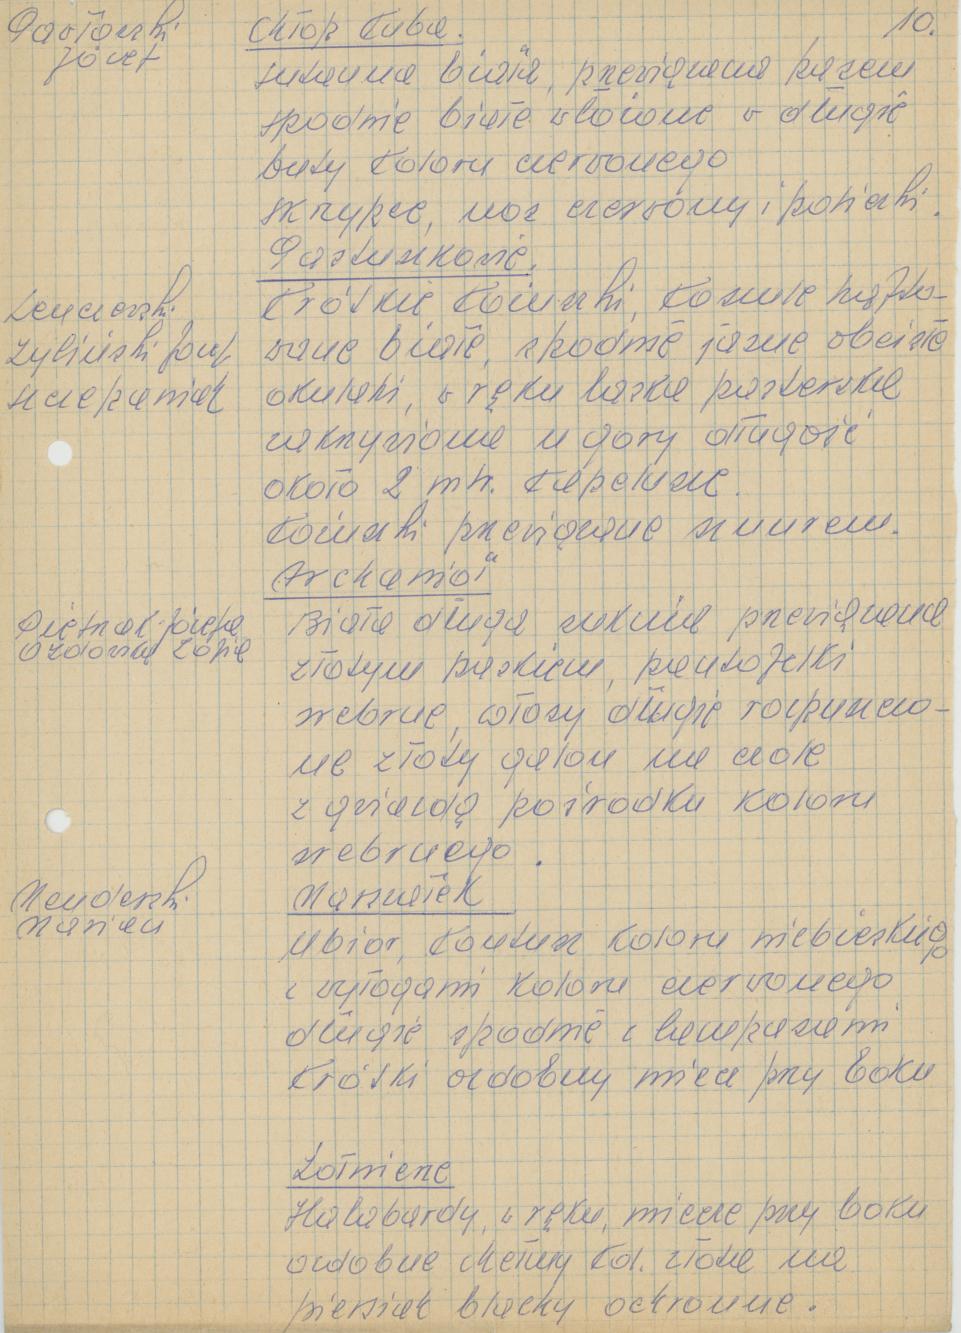 10.
Pawłowski
Józef
Chłop Kuba.
sukmana biała, przewiązana pasem
spodnie białe włożone w długie
buty koloru czerwonego
skrzypce, nos czerwony i policzki.
Pastuszkowie.
Żyliński Józef
Szczepaniak
Krótkie kożuszki, koszule hafto-
wane białe, spodnie jasne obcisłe
okulaki, w ręku laska pasterska
zakrzywiona u góry długość
około 2 mtr. Kapelusze.
Kożuszki przewiązane sznurem.
Archanioł
Pietrzak Józefa
Zofia
Biała długa suknia przewiązana
złotym paskiem, pantofelki
srebrne, włosy długie rozpuszczo-
ne złoty galon na czole
z gwiazdą pośrodku koloru
srebrnego.
Marian
Marszałek
Ubiór, kontusz koloru niebieskiego
z wyłogami koloru czerwonego
długie spodnie z lampasami
krótki ozdobny miecz przy boku
Żołnierze
Halabardy, w ręku, miecze przy boku
ozdobne hełmy kol. złota na
piersiach blachy ochronne.